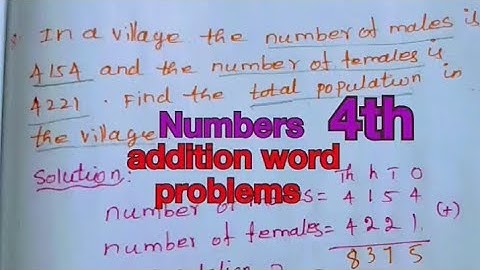 In a village the number of males is
4154 and the number of females is
4221. Find the total population in
the village
Numbers 4th
addition word
problems
Solution:
Th h T O
number of males = 4154
number of females = 4221 (+)
8375